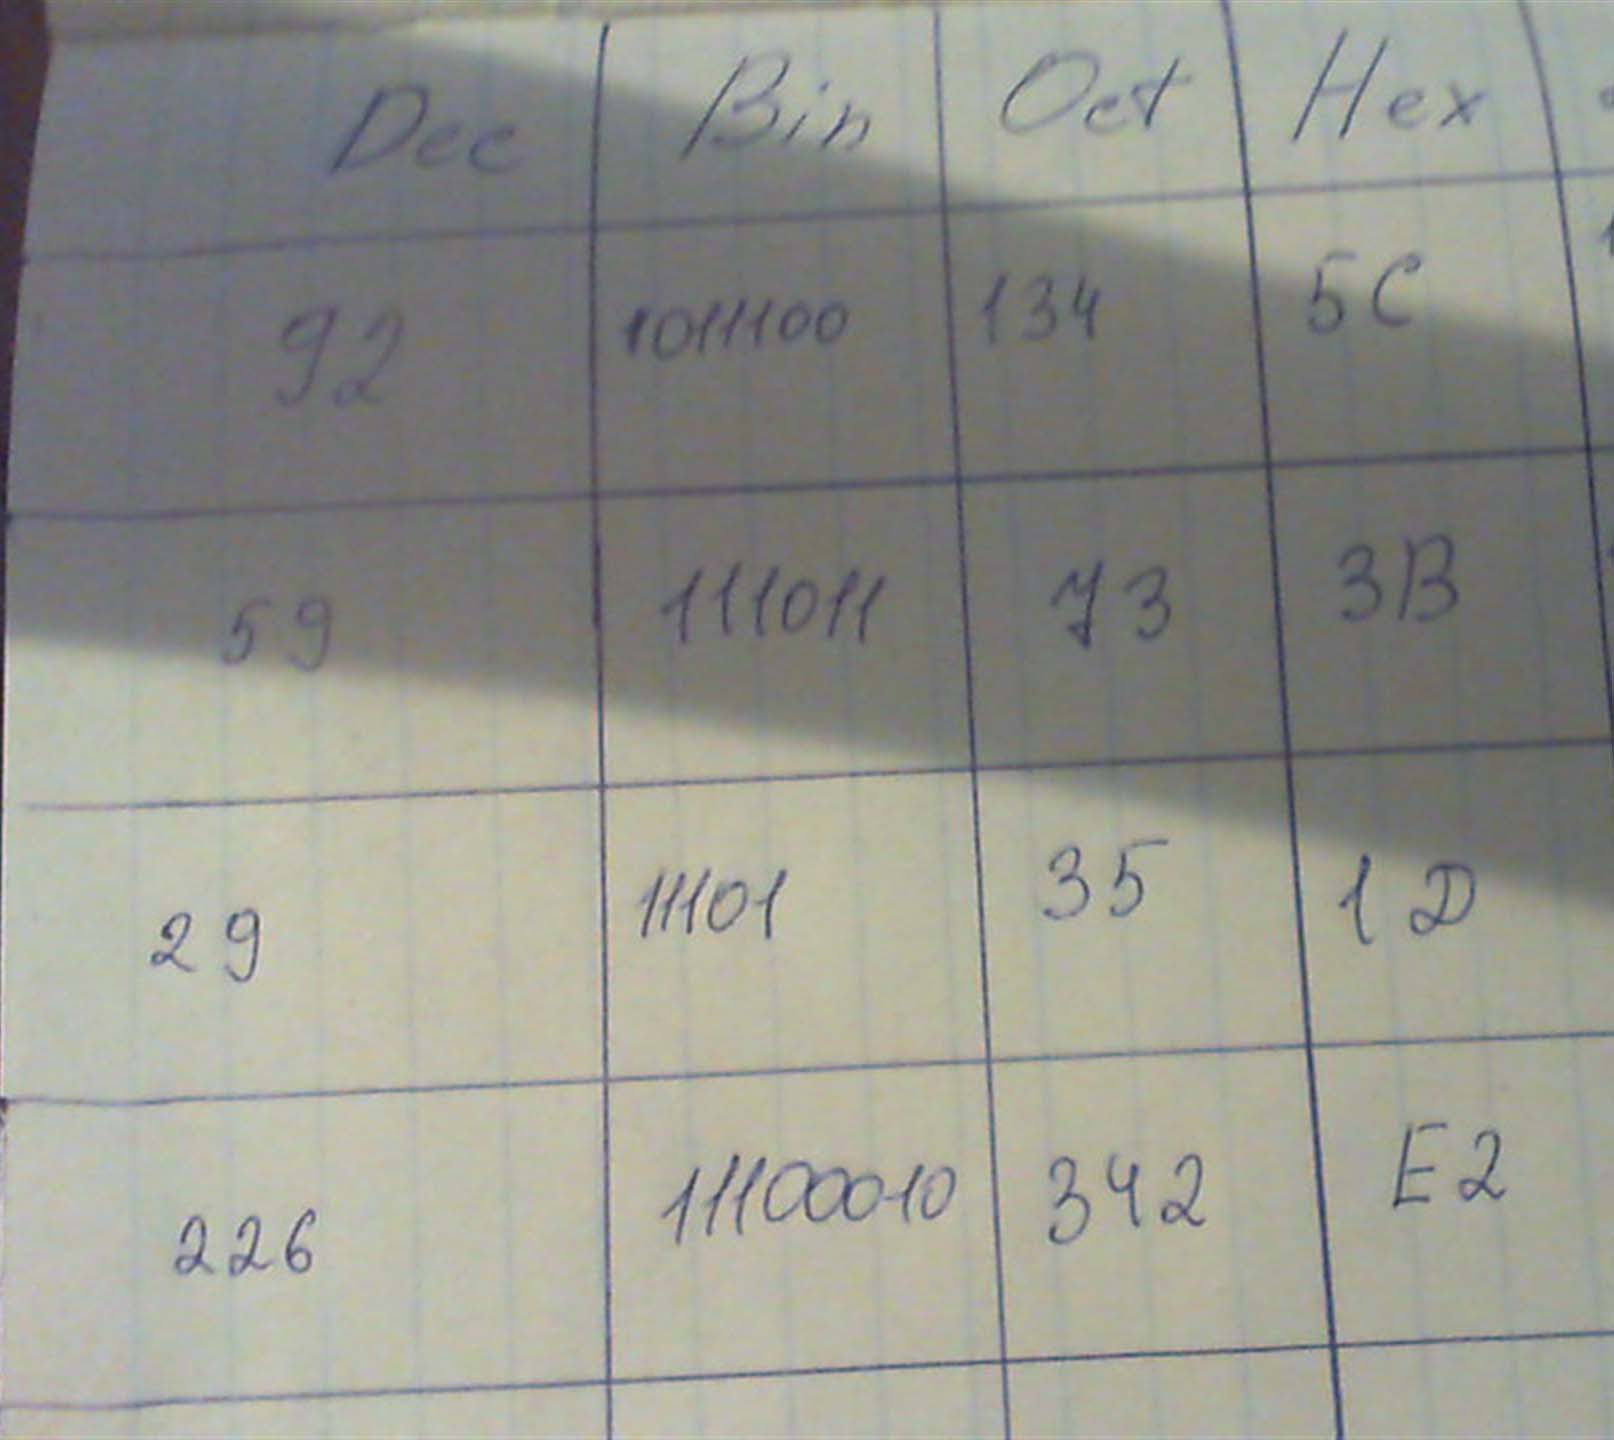 Dec Bin Oct Hex
92 1011100 134 5C
59 111011 73 3B
29 11101 35 1D
226 11100010 342 E2